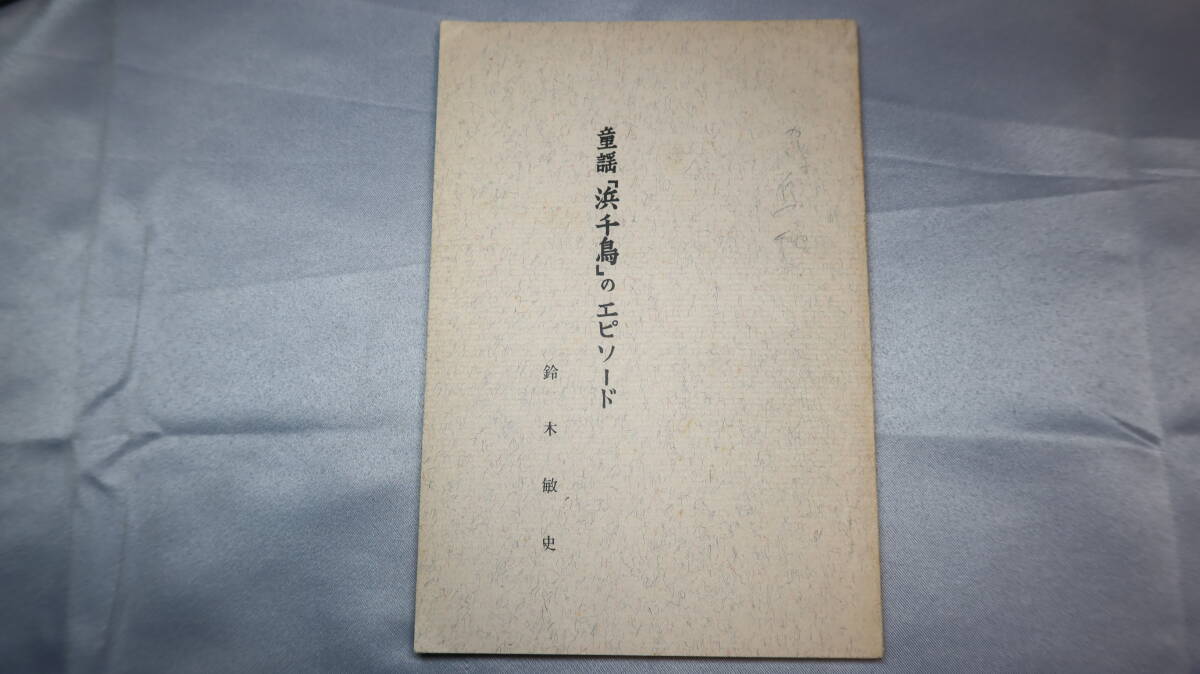 童謡『浜千鳥』のエピソード
鈴木敏史